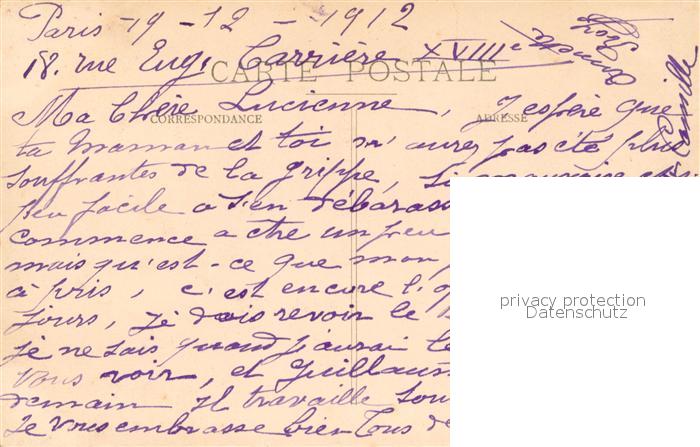 Paris 19-12-1912
18. rue Eug. Carrière XVIIIe
CARTE POSTALE
Ma Chère Lucienne, J'espère que
CORRESPONDANCE
ADRESSE
ta Maman et toi n'aurez pas été plus
souffrantes de la grippe, si
peu facile a s'en débarass
commence a etre un peu
mais qu'est-ce que mon
à pris, c'est encore l'
jours, je dois revoir le
je ne sais quand j'aurai le
vous voir, et Guillaum
demain Il travaille
Je vous embrasse bien Tous de
famille
privacy protection
Datenschutz